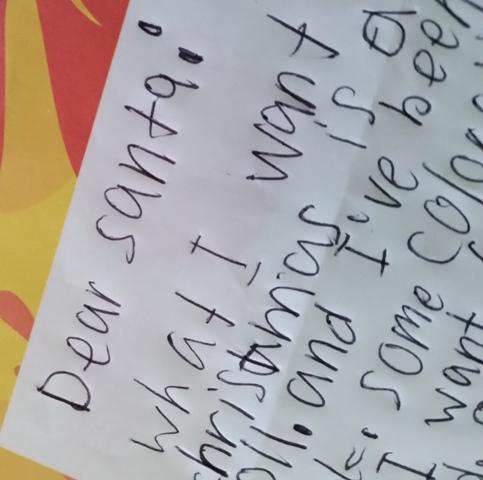 Dear santa:
what I want
hristamias is a
oll. and I've been
some color
I want